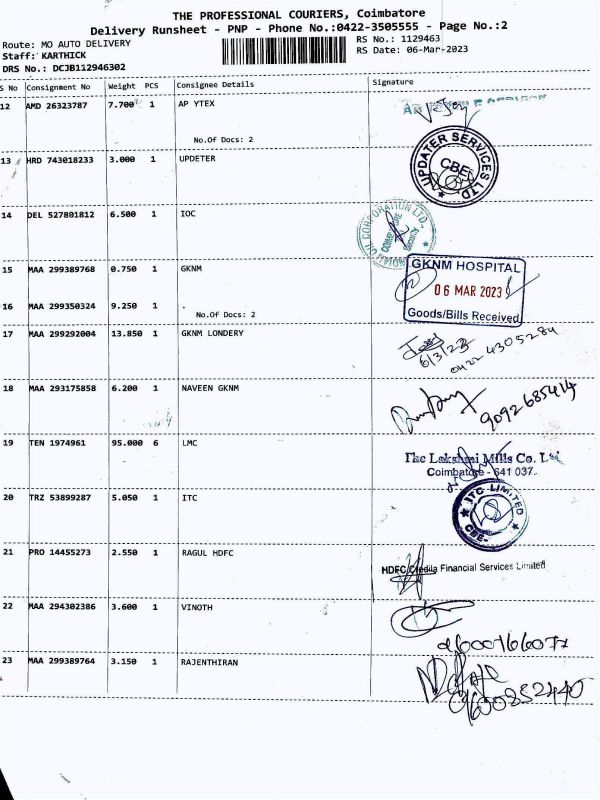 THE PROFESSIONAL COURIERS, Coimbatore
Delivery Runsheet - PNP - Phone No.:0422-3505555 - Page No.:2
Route: MO AUTO DELIVERY
RS No.: 1129463
Staff: KARTHICK
RS Date: 06-Mar-2023
DRS No.: DCJB112946302
S No Consignment No Weight PCS Consignee Details Signature
12 AMD 26323787 7.700 1 AP YTEX
No.Of Docs: 2
13 HRD 743018233 3.000 1 UPDETER
UPDATER SERVICES LTD
CBE
14 DEL 527801812 6.500 1 IOC
INDIAN OIL CORPORATION LTD.
15 MAA 299389768 0.750 1 GKNM
GKNM HOSPITAL
06 MAR 2023
Goods/Bills Received
16 MAA 299350324 9.250 1 .
No.Of Docs: 2
17 MAA 299292004 13.850 1 GKNM LONDERY
6/3/23
0422 4305284
18 MAA 293175858 6.200 1 NAVEEN GKNM
9092685414
19 TEN 1974961 95.000 6 LMC
The Lakshmi Mills Co. Ltd
Coimbatore - 641 037.
20 TRZ 53899287 5.050 1 ITC
ITC LIMITED
CBE-
21 PRO 14455273 2.550 1 RAGUL HDFC
HDFC Credila Financial Services Limited
22 MAA 294302386 3.600 1 VINOTH
23 MAA 299389764 3.150 1 RAJENTHIRAN